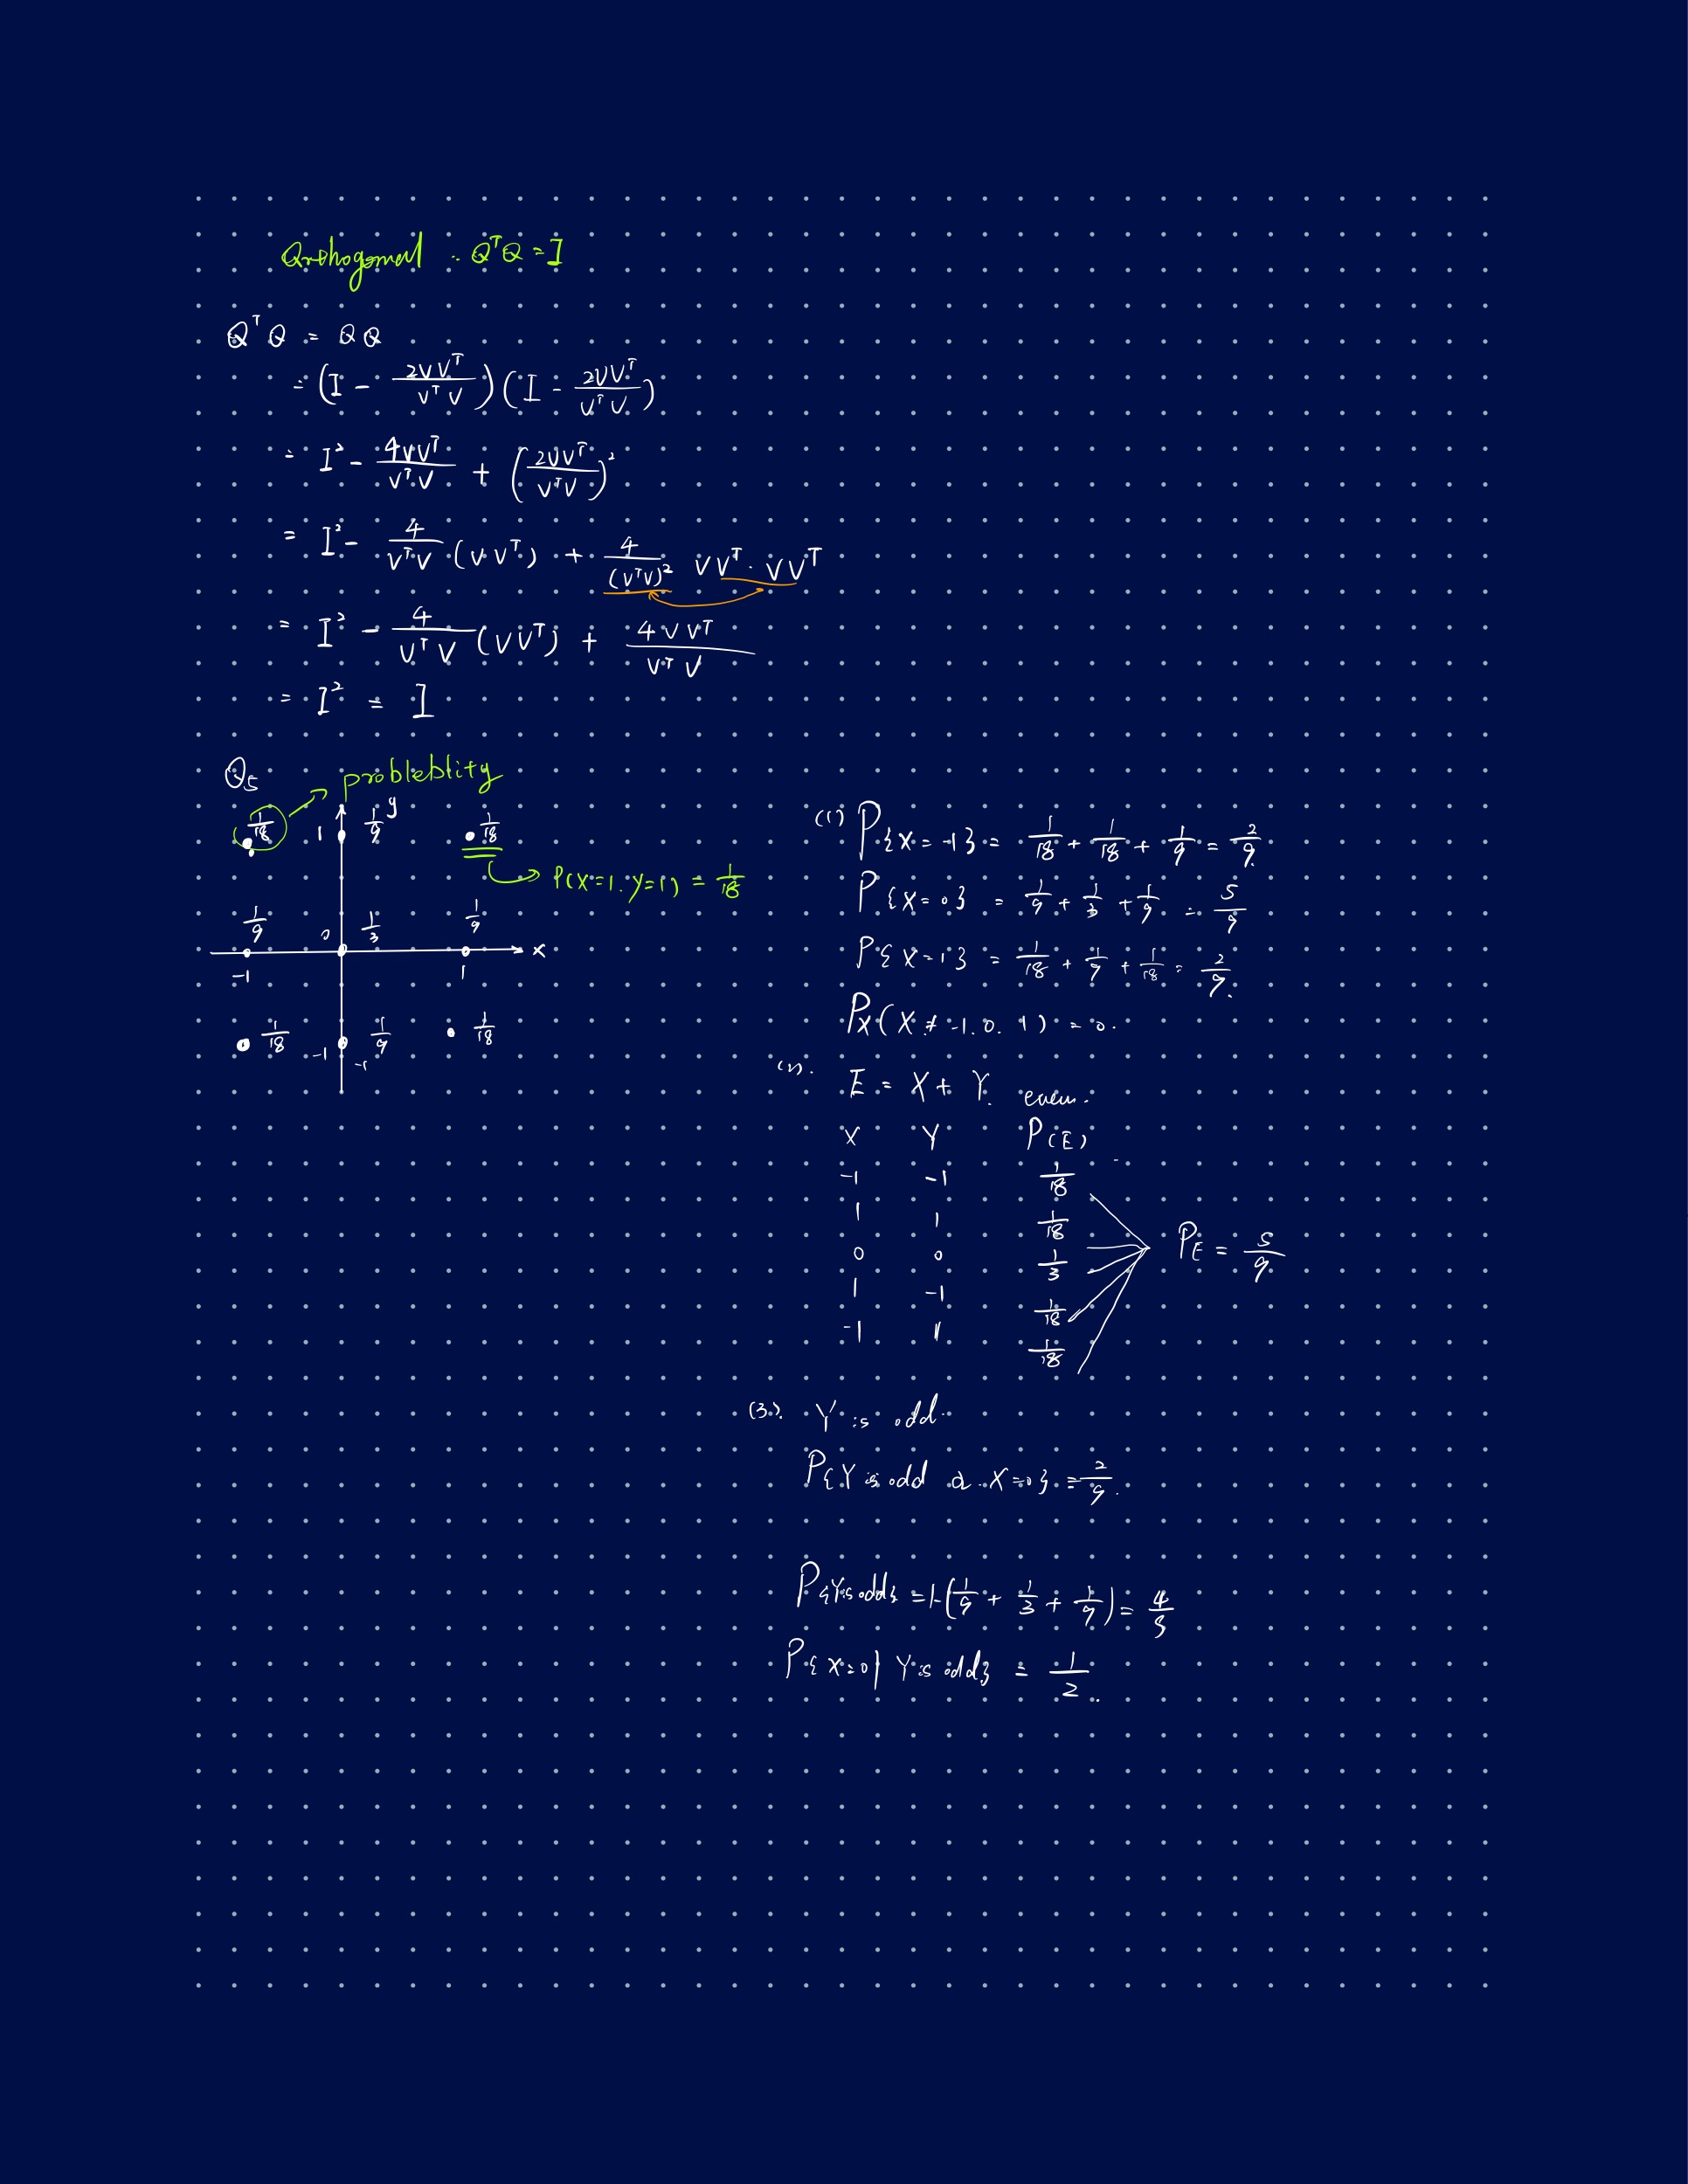 Orthogonal : Q^T Q = I
Q^T Q = Q Q
= (I - \frac{2VV^T}{V^T V}) (I - \frac{2VV^T}{V^T V})
= I^2 - \frac{4VV^T}{V^T V} + (\frac{2VV^T}{V^T V})^2
= I^2 - \frac{4}{V^T V} (VV^T) + \frac{4}{(V^T V)^2} VV^T · VV^T
= I^2 - \frac{4}{V^T V} (VV^T) + \frac{4VV^T}{V^T V}
= I^2 = I
Q5 probleblity
1/18 1 1/9 y 1/18
P(X=1. Y=1) = 1/18
1/9 0 1/3 1/9 x
-1 1
1/18 -1 1/9 1/18
-1
(1) P{X = -1} = 1/18 + 1/18 + 1/9 = 2/9.
P{X = 0} = 1/9 + 1/3 + 1/9 = 5/9
P{X = 1} = 1/18 + 1/9 + 1/18 = 2/9.
P_X (X ≠ -1. 0. 1) = 0.
(2). E = X + Y. even.
X Y P(E)
-1 -1 1/18
1 1 1/18
0 0 1/3
P_E = 5/9
1 -1 1/18
-1 1 1/18
(3). Y is odd.
P{Y is odd a X=0} = 2/9.
P{Y is odd} = 1-(1/9 + 1/3 + 1/9) = 4/9
P{X=0| Y is odd} = 1/2.